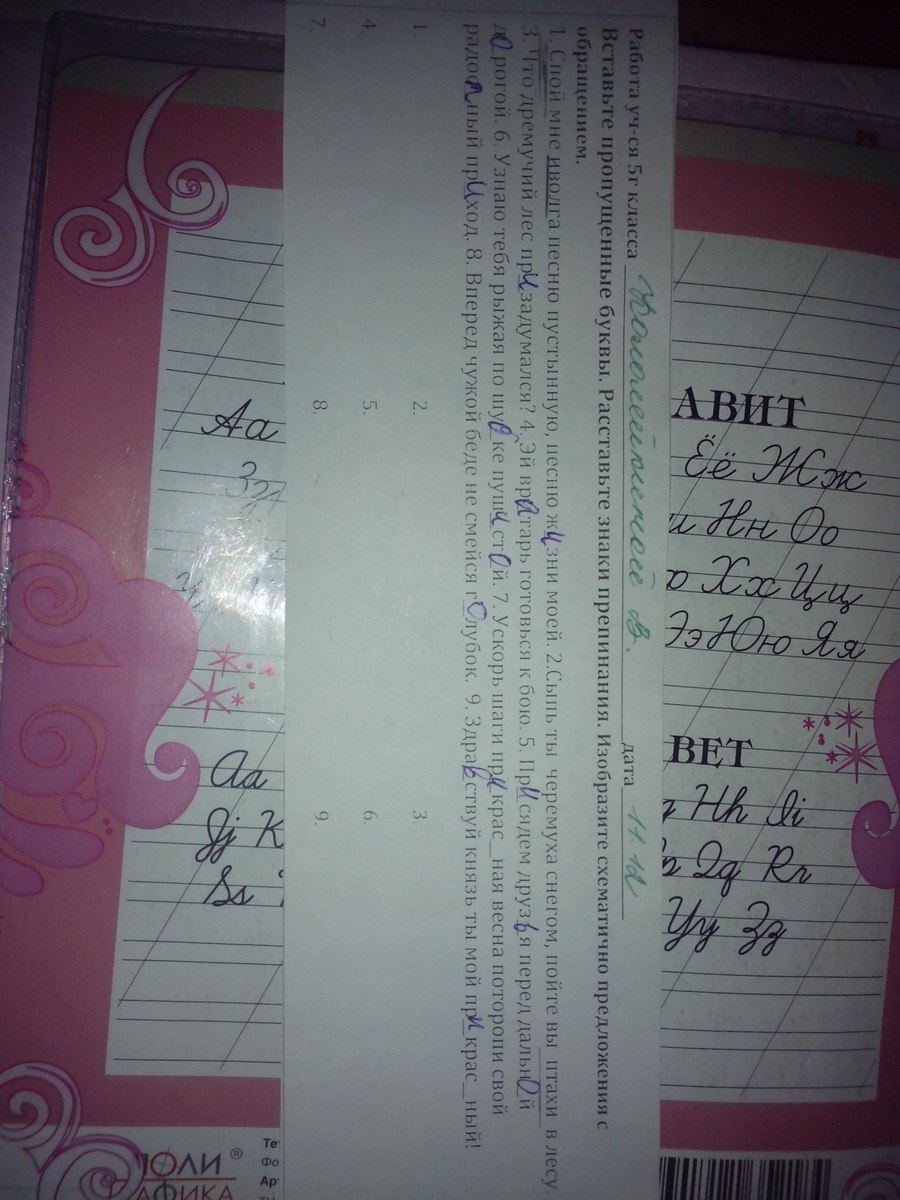 Работа уч-ся 5г класса дата 11.12
Вставьте пропущенные буквы. Расставьте знаки препинания. Изобразите схематично предложения с
обращением.
1. Спой мне иволга песню пустынную, песню жизни моей. 2.Сыпь ты черемуха снегом, пойте вы птахи в лесу.
3. Что дремучий лес призадумался? 4. Эй вратарь готовься к бою. 5. Присядем друзья перед дальной
дорогой. 6. Узнаю тебя рыжая по шубке пушистой. 7. Ускорь шаги прикрас_ная весна поторопи свой
радосный приход. 8. Вперед чужой беде не смейся голубок. 9. Здравствуй князь ты мой прикрас_ный!
1. 2. 3.
4. 5. 6.
7. 8. 9.
АВИТ
Ёё Жж
и Нн Оо
Хх Цц
Ээ Юю Яя
ВЕТ
Hh Ii
Qq Rr
Yy Zz
Аа
Ззи
Aa
Jj K
Ss
ПОЛИ
АФИКА
®
Те
Фо
Ар